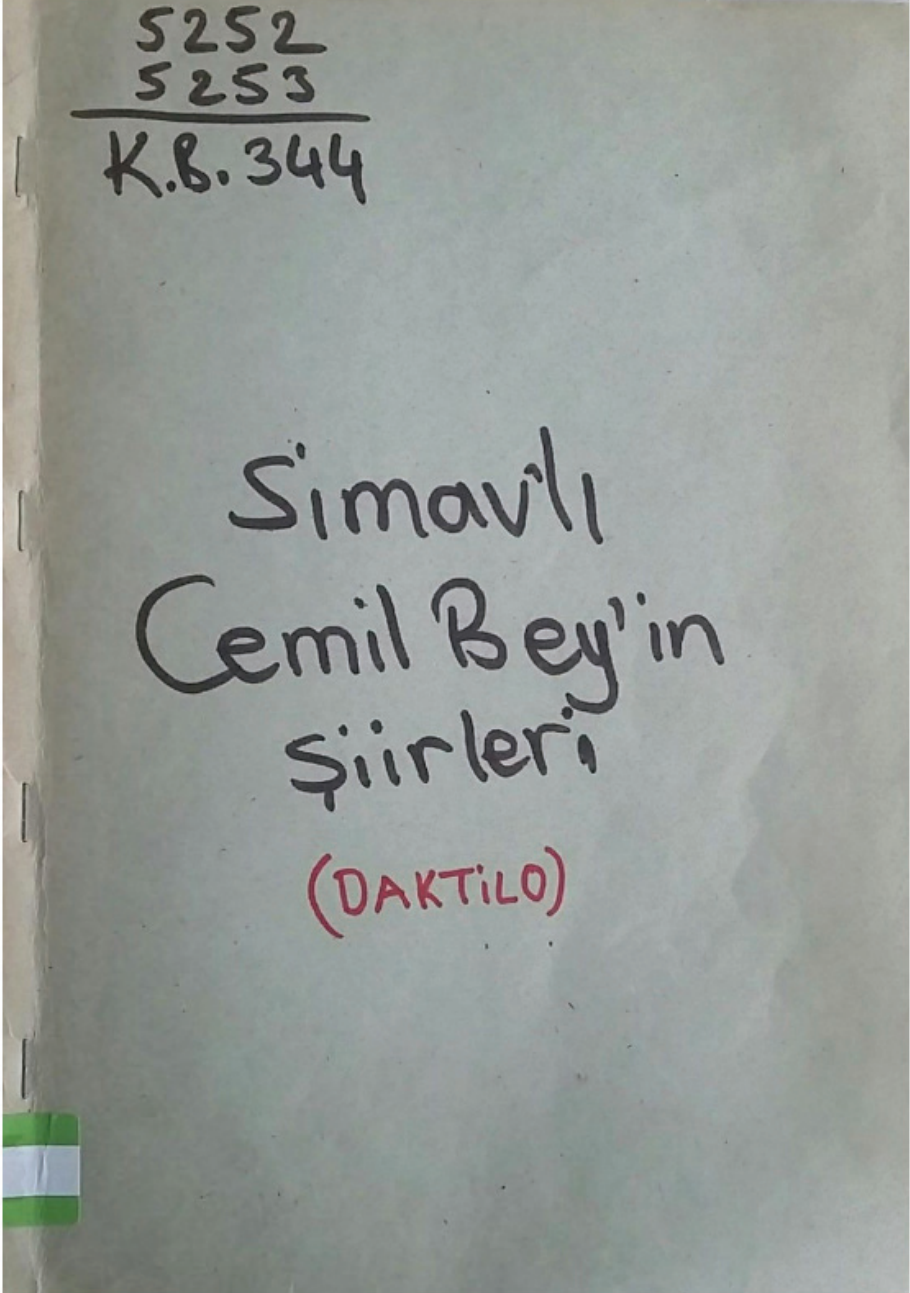 5252
5253
K.B. 344
Simav'lı
Cemil Bey'in
şiirleri
(DAKTİLO)